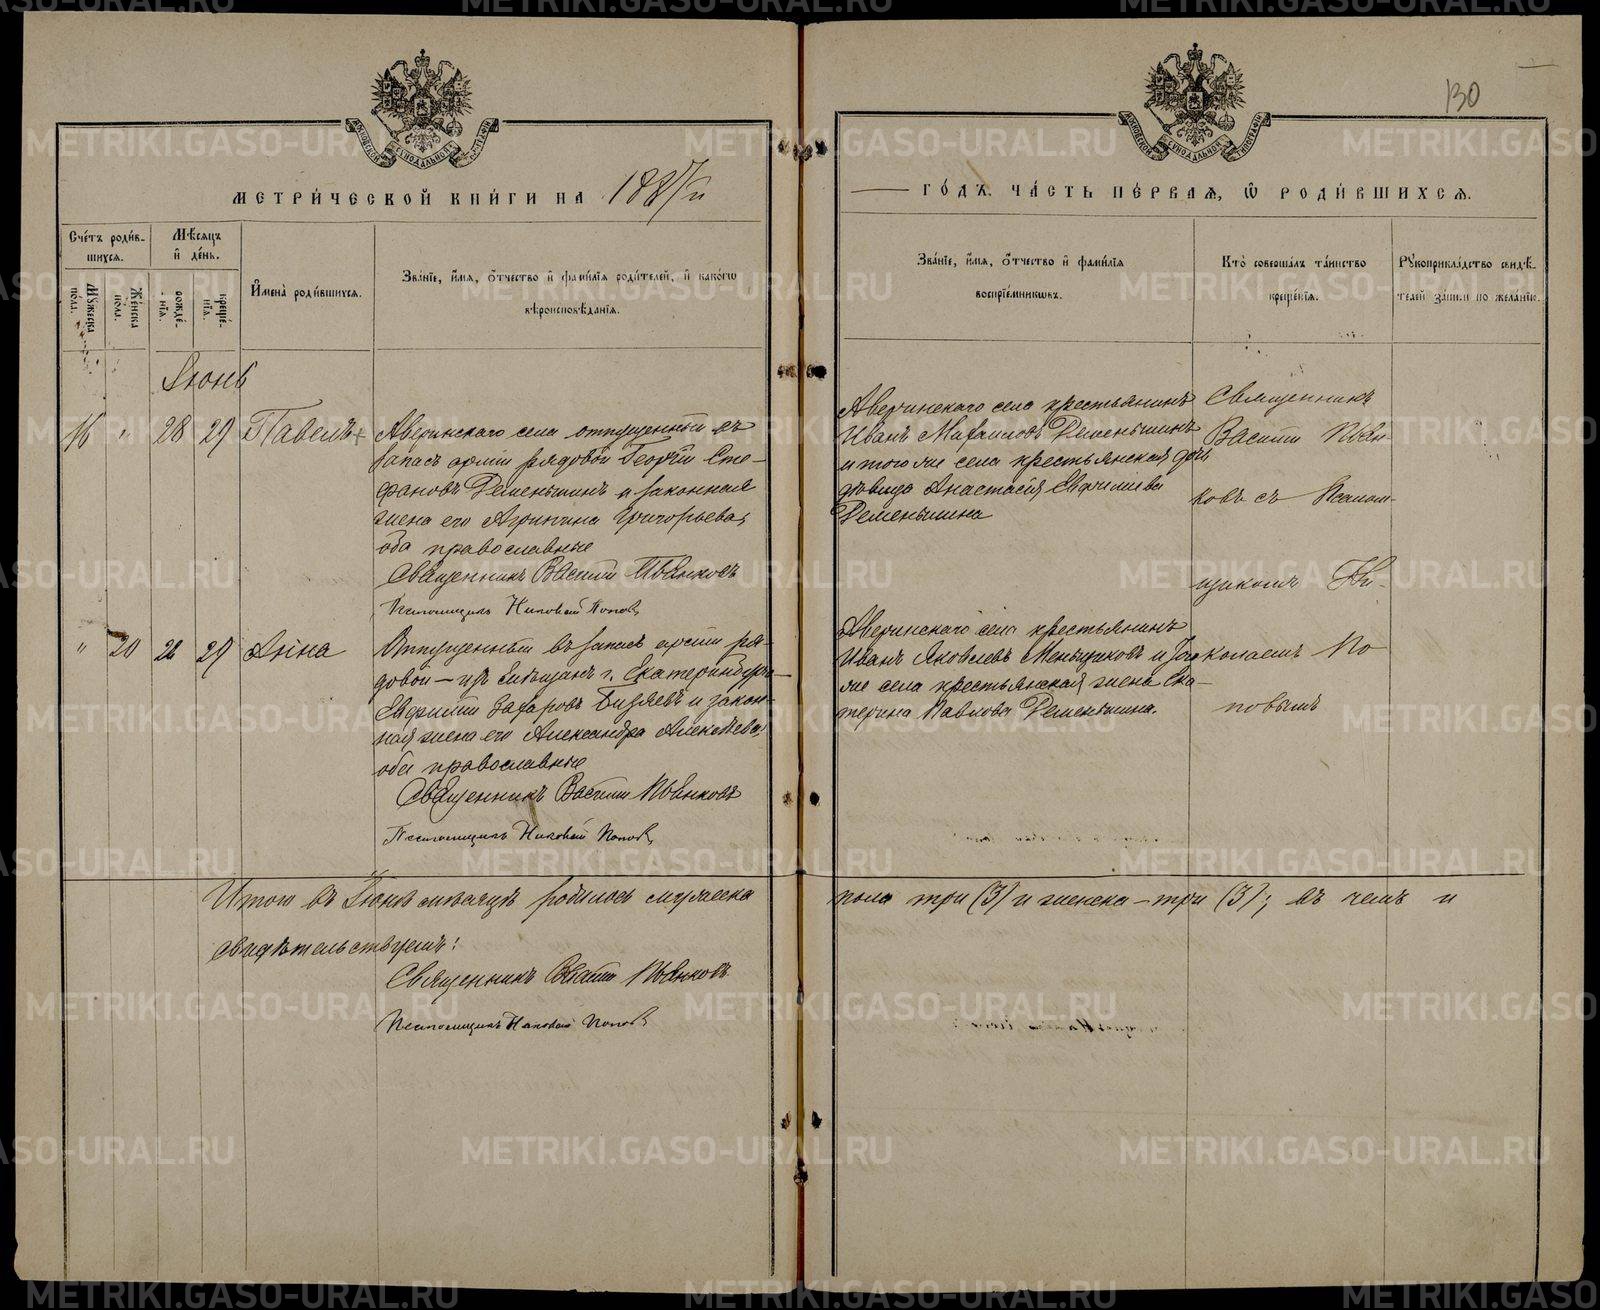 130
МЕТРИ́ЧЕСКОЙ КНИ́ГИ НА 1887й
ГО́ДЪ. ЧА́СТЬ ПЕ́РВАЯ, Ѿ РОДИ́ВШИХСЯ.
Сче́тъ роди́в-
шихся.
Му́жеска по́ла.
Же́нска по́ла.
Мѣ́сяцъ
и де́нь.
рожде́-
нія.
креще́-
нія.
Имена̀ роди́вшихся.
Зва́ніе, и́мя, о́тчество и фами́лія роди́телей, и како́гѡ
вѣроисповѣ́данія.
Зва́ніе, и́мя, о́тчество и фами́лія
воспріе́мниковъ.
Кто̀ соверша́лъ та́инство
креще́нія.
Рукоприкла́дство свидѣ́-
телей за́писи по жела́нію.
Іюнь
16 " 28 29 Павелъ +
Аверинскаго села отпущенный въ
запасъ арміи рядовой Георгій Сте-
фановъ Деменьшинъ и законная
жена его Агрипина Григорьева,
оба православные
Священникъ Василій Иванковъ
Псаломщикъ Николай Поповъ
Аверинскаго села крестьянинъ
Иванъ Михаиловъ Деменьшинъ
и того же села крестьянская дочь
дѣвица Анастасія Евфимиева
Деменьшина
Священникъ
Василій Иван-
ковъ съ Псалом-
щикомъ Ни-
колаемъ По
повымъ
" 20 28 29 Анна
Отпущенный въ запасъ арміи ря-
довой – изъ мѣщанъ г. Екатеринбурга –
Евфимій Захаровъ и закон-
ная жена его Александра Алексѣева,
оба православные
Священникъ Василій Иванковъ
Псаломщикъ Николай Поповъ
Аверинскаго села крестьянинъ
Иванъ Яковлевъ Меньщиковъ и того
же села крестьянская жена Ека-
терина Павлова Деменьшина.
Итого въ Іюнѣ мѣсяцѣ родилось мужеска пола три (3) и женска – три (3); въ чемъ и
свидѣтельствуемъ:
Священникъ Василій Иванковъ
Псаломщикъ Николай Поповъ
METRIKI.GASO-URAL.RU